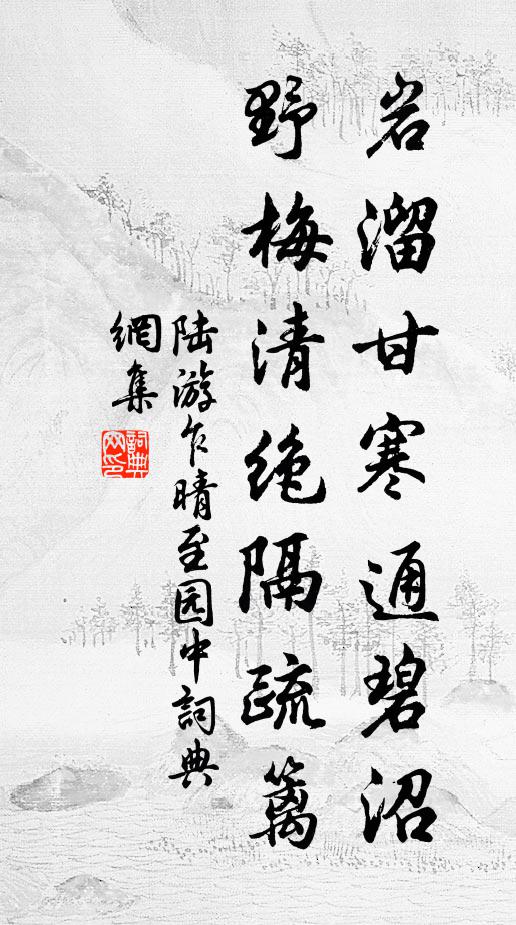 岩溜甘寒通碧沼
野梅清绝隔疏篱
陆游乍晴至园中詞典
網集
詞典网印